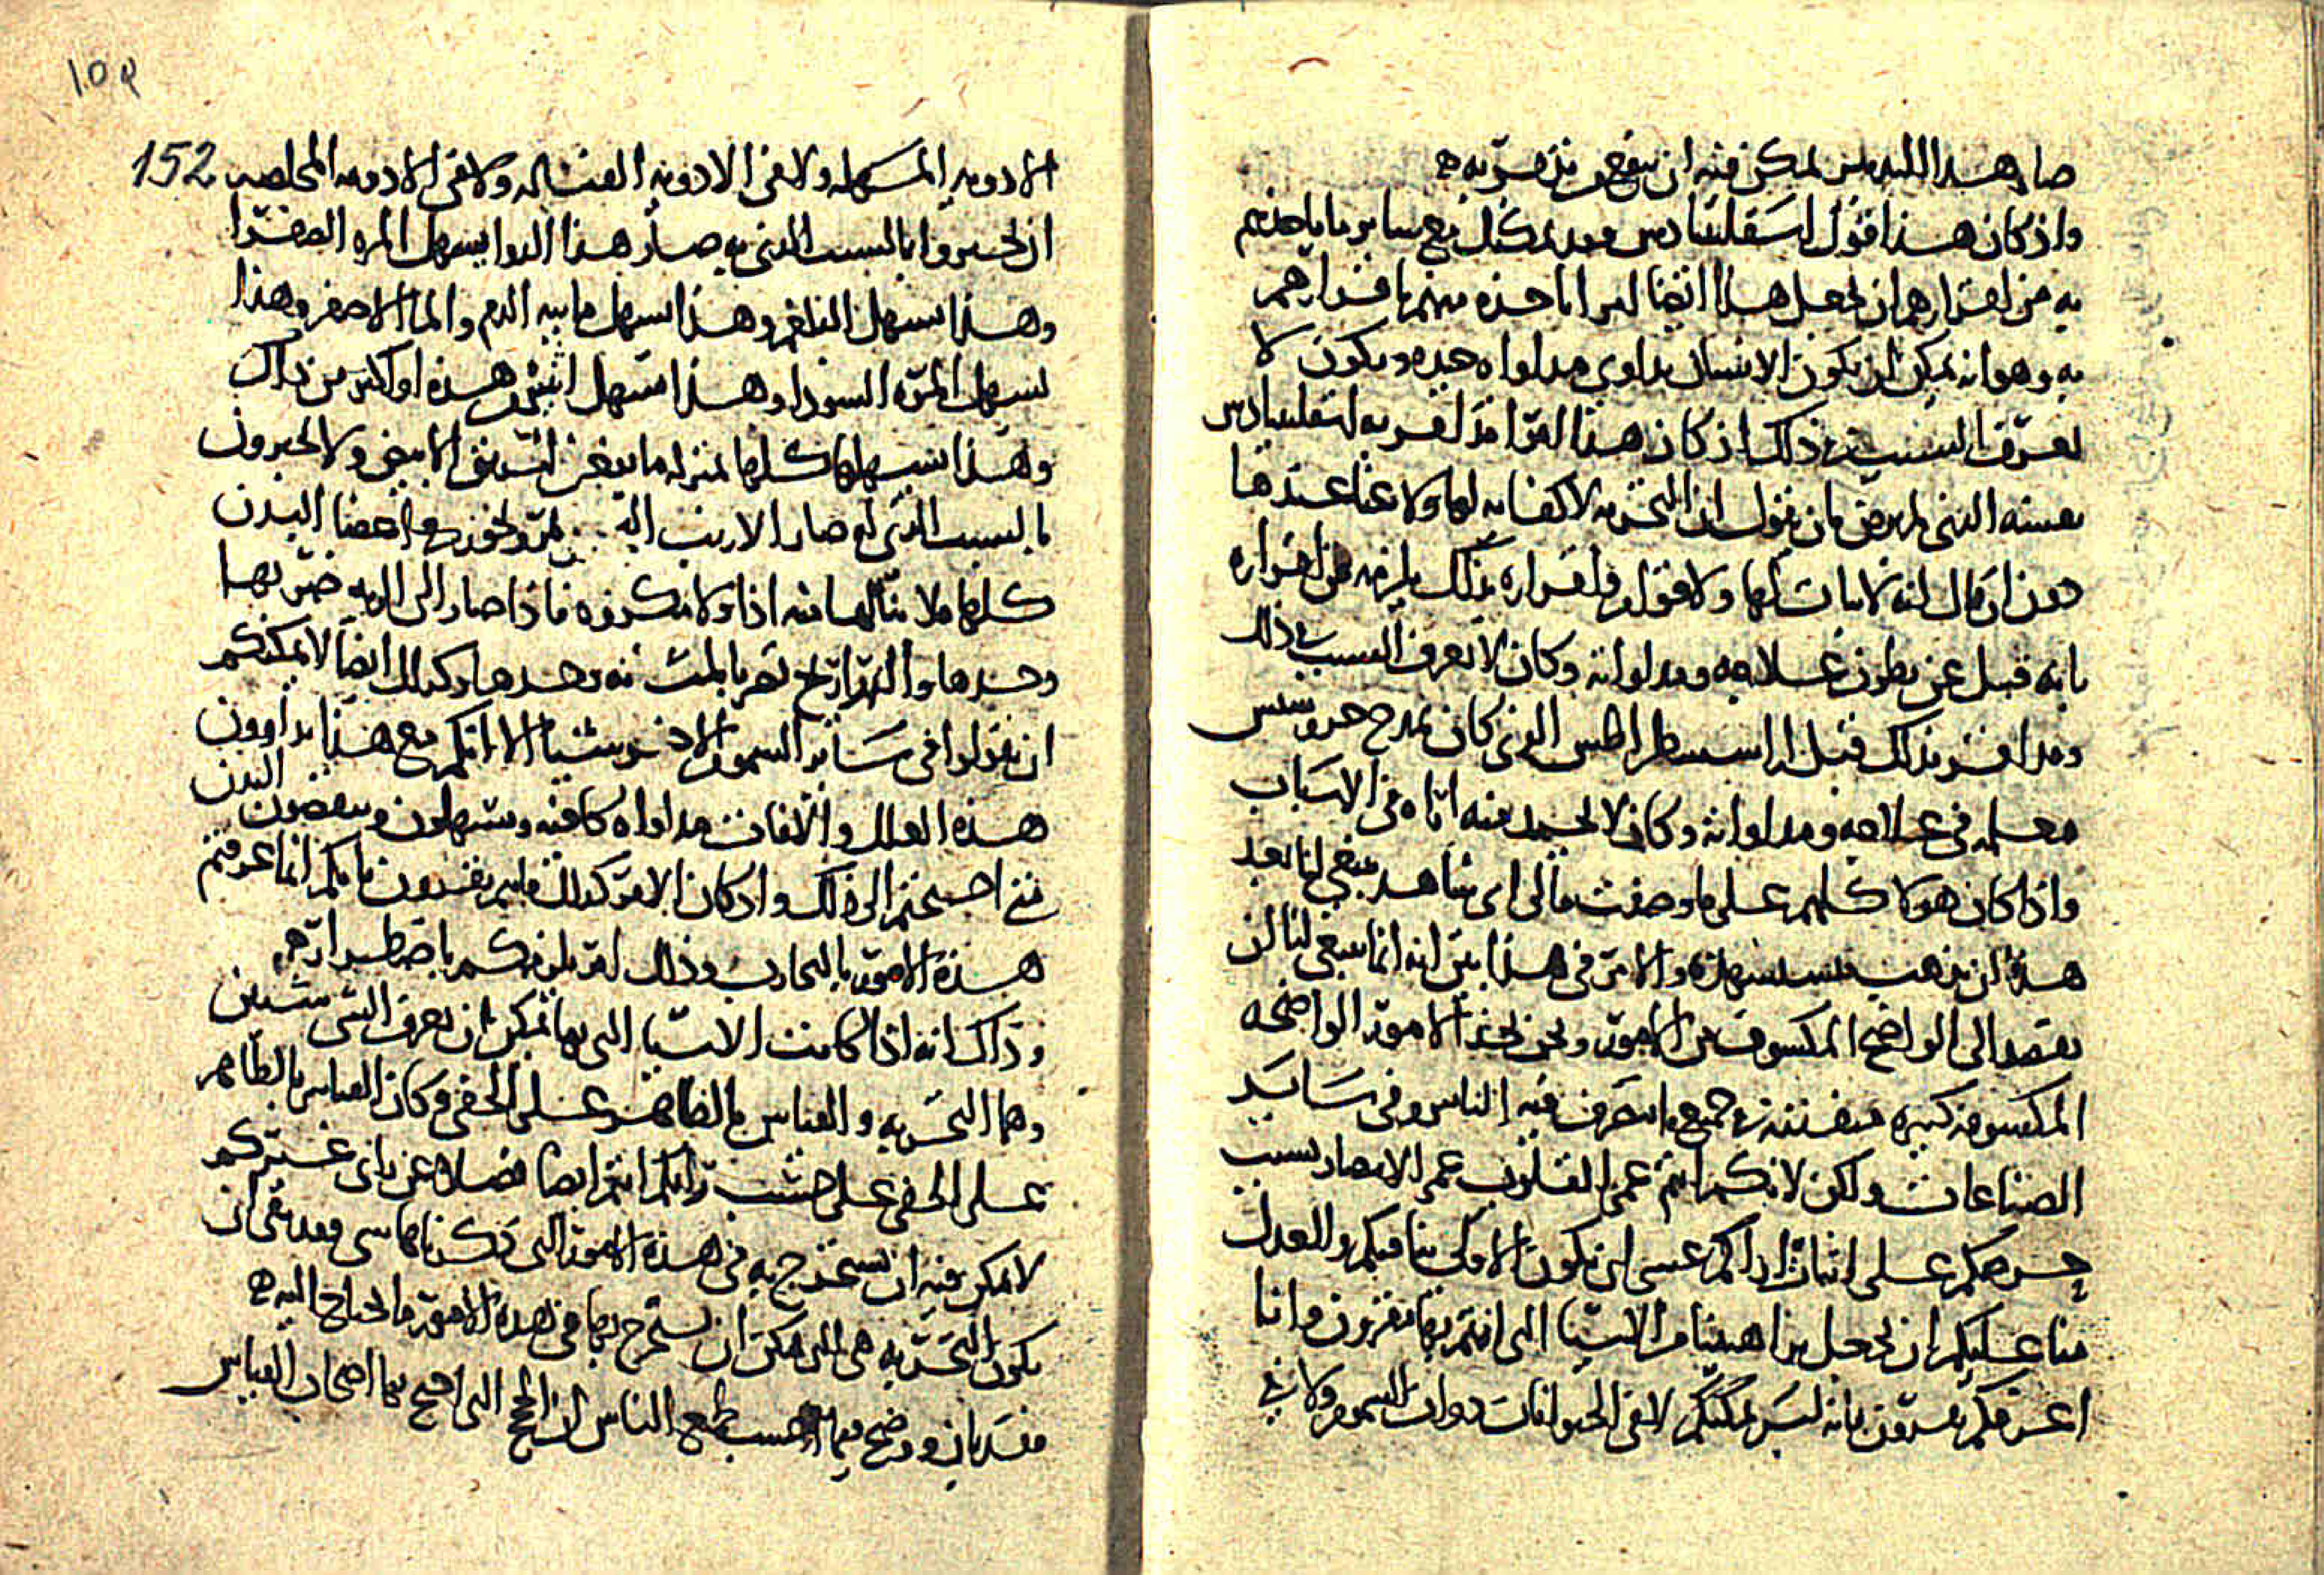 صار هذا اللبدىس لمكن فيه ان ينفع من نهسوىه ه
واذ كان هذا قول اسقلىىادس فقد يمكنك مع ساير ما ياخذهم
به من اقرارهم ان تجعل هذا ايضا امرا تاخذه منهم باقرارهم
به وهو انه يمكن ان يكون الانسان يداوى مداواه جيده ويكون لا
يعرف السبب فى ذلك اذ كان هذا امرا قد اقر به اسقلىىادس
بعينه الذى لم يرض بان يقول ان التجربه لا كفايه لها ولا غنا عندها
دون ان قال انه لا ثبات لها ولا قوام فاقراره بذلك يلزمه من اقراره
بانه قبل عن بطون علاجه ومداواته وكان لا يعرف السبب فى ذلك
وقد اقر بذلك قبل اراسسطراطس الذى كان يمدح خروسبس
معلمه فى علاجه ومداواته وكان لا يحمد منه اتاه فى الاسباب
واذا كان هولا كلهم على ما وصفت فالى اى شاهد ينبغى لنا بعد
هذا ان نذهب فنستشهده والامر فى هذا بين انه انما ينبغى لنا ان
نقصد الى الواضح المكشوف من الامور ونحن نجد الامور الواضحه
المكشوفه كثيره متفننه فى جميع ما يتصرف فيه الناس وفى ساير
الصناعات ولكن لانكم انتم عمى القلوب عمى الابصار بسبب
حرصكم على اثبات اراكم عسى ان يكون الاولى بنا فيكم والعدل
منا عليكم ان نجعل براهيننا من الاشيا التى انتم بها تقرون وانا
اعرفكم تقرون بانه ليس يمكنكم لا فى الحيوانات ذوات السموم ولا فى
١٥٢
152
الادويه المسهله ولا فى الادويه القتاله ولا فى الادويه المخلصه
ان تخبروا بالسبب الذى به صار هذا الدوا يسهل المره الصفرا
وهذا يسهل البلغم وهذا يسهل ماييه الدم والما الاصفر وهذا
يسهل المره السودا وهذا يسهل اثنين من هذه او اكثر من ذلك
وهذا يسهلها كلها بمنزله ما يفعل الخربق الابيض ولا تخبرون
بالسبب الذى له صار الارنب البحرى يمر ويجوز على اعضا البدن
كلها فلا ينالها منه اذا ولا مكروه فاذا صار الى الريه ضر بها
وحدها والذراريح تضر بالمثانه وحدها وكذلك ايضا لا يمكنكم
ان تقولوا فى ساير السموم الاخر شيا الا انكم مع هذا تداوون
هذه العلل والافات مداواه كافيه وتسهلون وتنفضون البدن
متى احتجتم الى ذلك واذ كان الامر كذلك فانتم تقرون بانكم انما عرفتم
هذه الامور بالتجارب وذلك امر يلزمكم باضطرار
وذاك انه اذا كانت الاشيا التى بها يمكن ان يعرف الشى شيين
وهما التجربه والقياس بالظاهر على الخفى وكان القياس بالظاهر
على الخفى على حسب رايكم انتم ايضا فضلا عن راى غيركم
لا يمكن فيه ان يستخرج به فى هذه الامور التى ذكرناها شى فقد بقى ان
يكون التجربه هى التى يمكن ان يستخرج بها فى هذه الامور ما يحتاج اليه ه
فقد بان ووضح فيما احسب لجميع الناس ان الحجج التى احتج بها اصحاب القياس